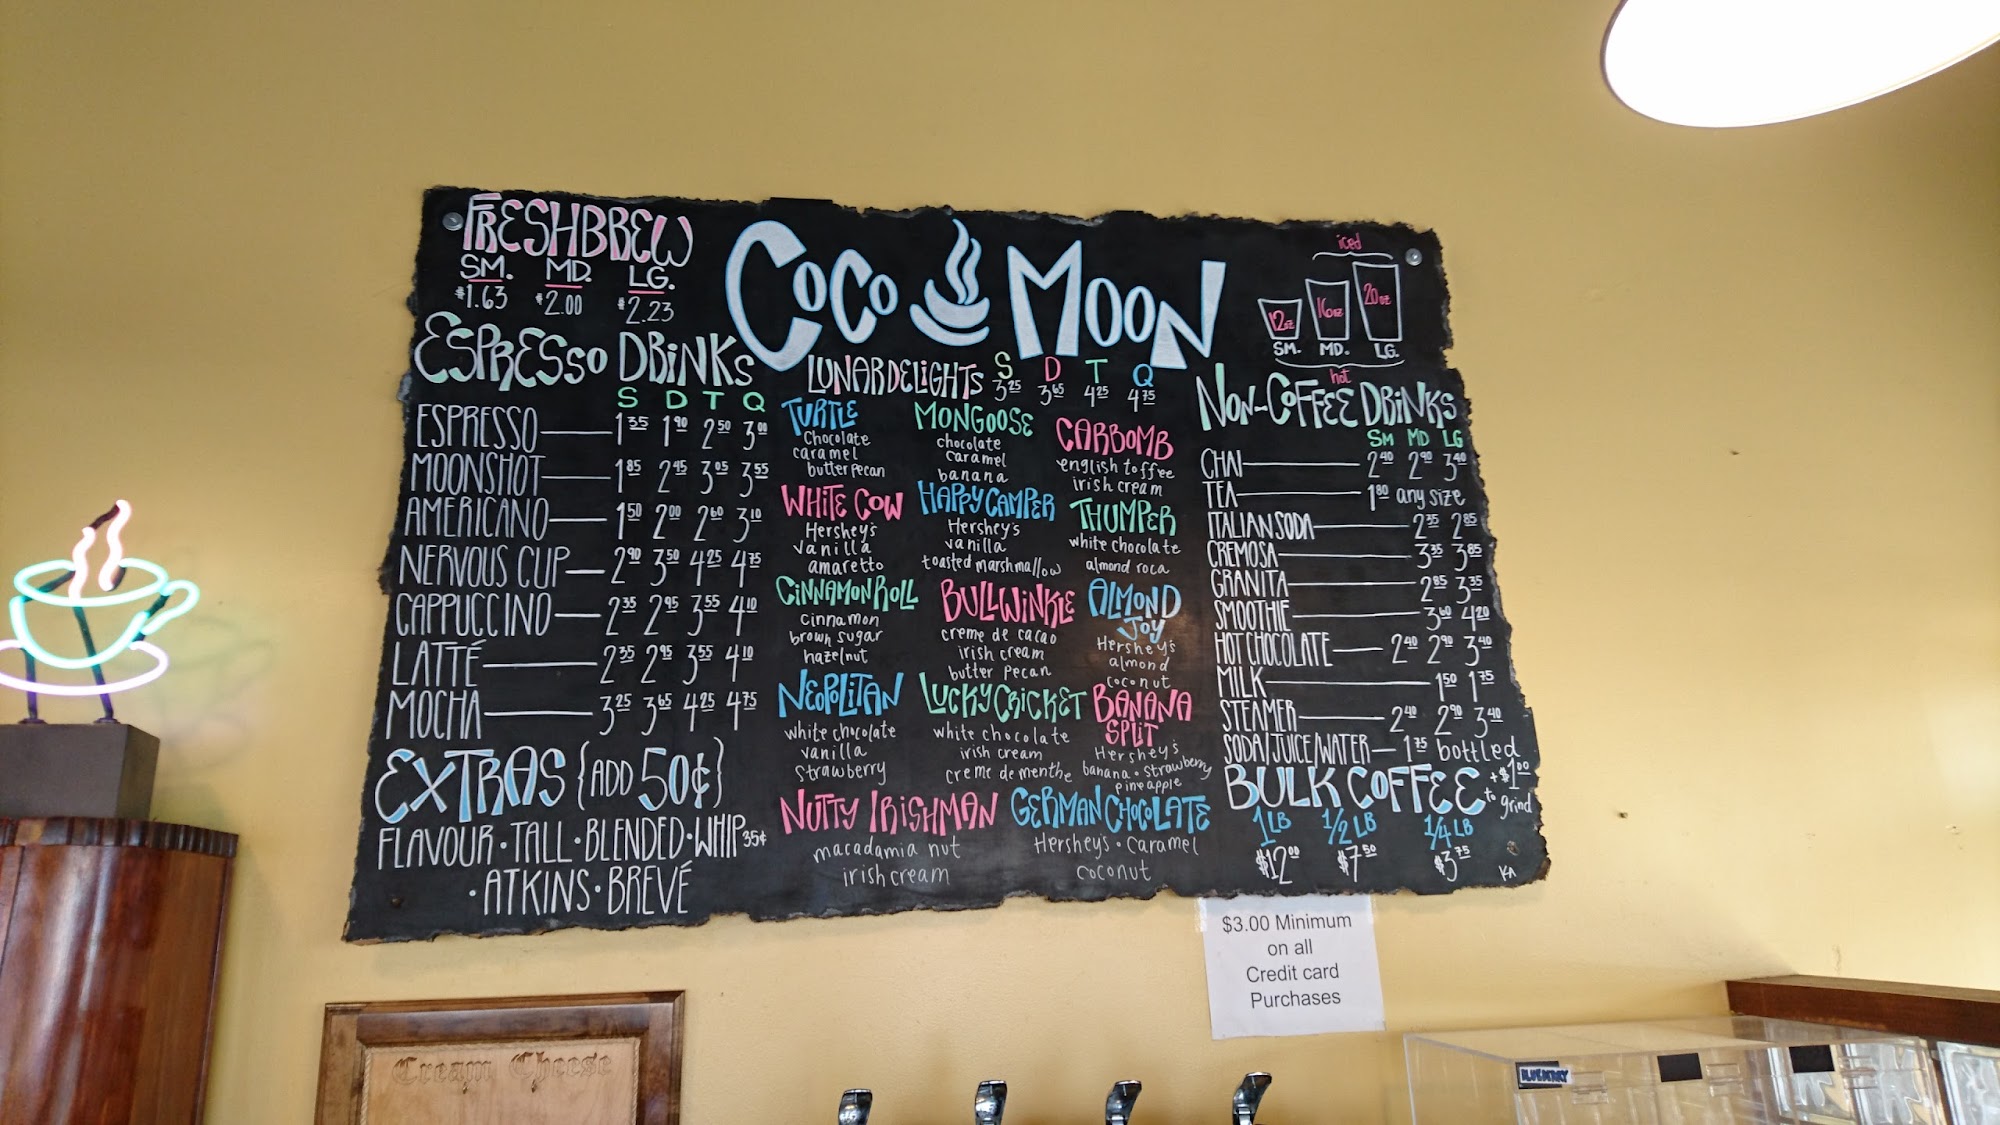 FRESHBREW
SM. MD. LG.
$1.63 $2.00 $2.23
ESPRESSO DRINKS
S D T Q
ESPRESSO 1.35 1.90 2.50 3.00
MOONSHOT 1.85 2.45 3.05 3.55
AMERICANO 1.50 2.00 2.60 3.10
NERVOUS CUP 2.90 3.50 4.25 4.75
CAPPUCCINO 2.35 2.95 3.55 4.10
LATTÉ 2.35 2.95 3.55 4.10
MOCHA 3.25 3.65 4.25 4.75
EXTRAS {ADD 50¢}
FLAVOUR • TALL • BLENDED • WHIP 35¢
• ATKINS • BREVÉ
COCO MOON
LUNAR DELIGHTS S D T Q
3.25 3.65 4.25 4.75
TURTLE
Chocolate
caramel
butter pecan
MONGOOSE
chocolate
caramel
banana
CARBOMB
english toffee
irish cream
WHITE COW
Hershey's
vanilla
amaretto
HAPPY CAMPER
Hershey's
vanilla
toasted marshmallow
THUMPER
white chocolate
almond roca
CINNAMON ROLL
cinnamon
brown sugar
hazelnut
BULLWINKLE
creme de cacao
irish cream
butter pecan
ALMOND
JOY
Hershey's
almond
coconut
NEOPOLITAN
white chocolate
vanilla
strawberry
LUCKY CRICKET
white chocolate
irish cream
creme de menthe
BANANA
SPLIT
Hershey's
banana • strawberry
pineapple
NUTTY IRISHMAN
macadamia nut
irish cream
GERMAN CHOCOLATE
Hershey's • Caramel
coconut
iced
12oz 16oz 20oz
SM. MD. LG.
hot
NON-COFFEE DRINKS
SM MD LG
CHAI 2.40 2.90 3.40
TEA 1.80 any size
ITALIAN SODA 2.35 2.85
CREMOSA 3.35 3.85
GRANITA 2.85 3.35
SMOOTHIE 3.60 4.20
HOT CHOCOLATE 2.40 2.90 3.40
MILK 1.50 1.75
STEAMER 2.40 2.90 3.40
SODA/JUICE/WATER 1.75 bottled
BULK COFFEE +$1.00
to grind
1 LB 1/2 LB 1/4 LB
$12.00 $7.50 $3.75
KA
$3.00 Minimum
on all
Credit card
Purchases
Cream Cheese
BLUEBERRY